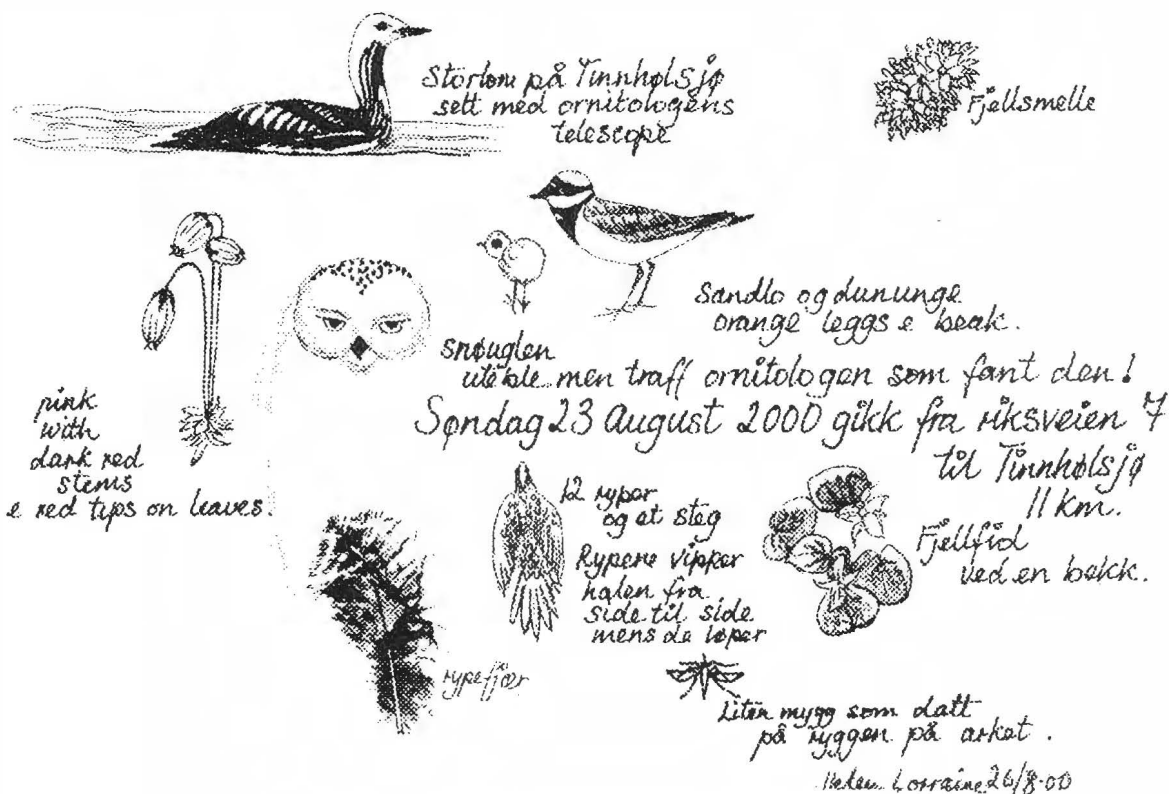 Storlom på Tinnhølsjø
sett med ornitologens
telescope
Fjellsmelle
Sandlo og dununge
orange leggs e beak.
snøuglen
uteble men traff ornitologen som fant den!
Søndag 23 August 2000 gikk fra riksveien 7
til Tinnhølsjø
11 km.
pink
with
dark red
stems
e red tips on leaves.
12 ryper
og et steg
Rypene vipper
halen fra
side til side
mens de løper
Fjellfiol
ved en bekk.
rypefjær
Liten mygg som datt
på ryggen på arket.
Helen Lorraine 26/8-00